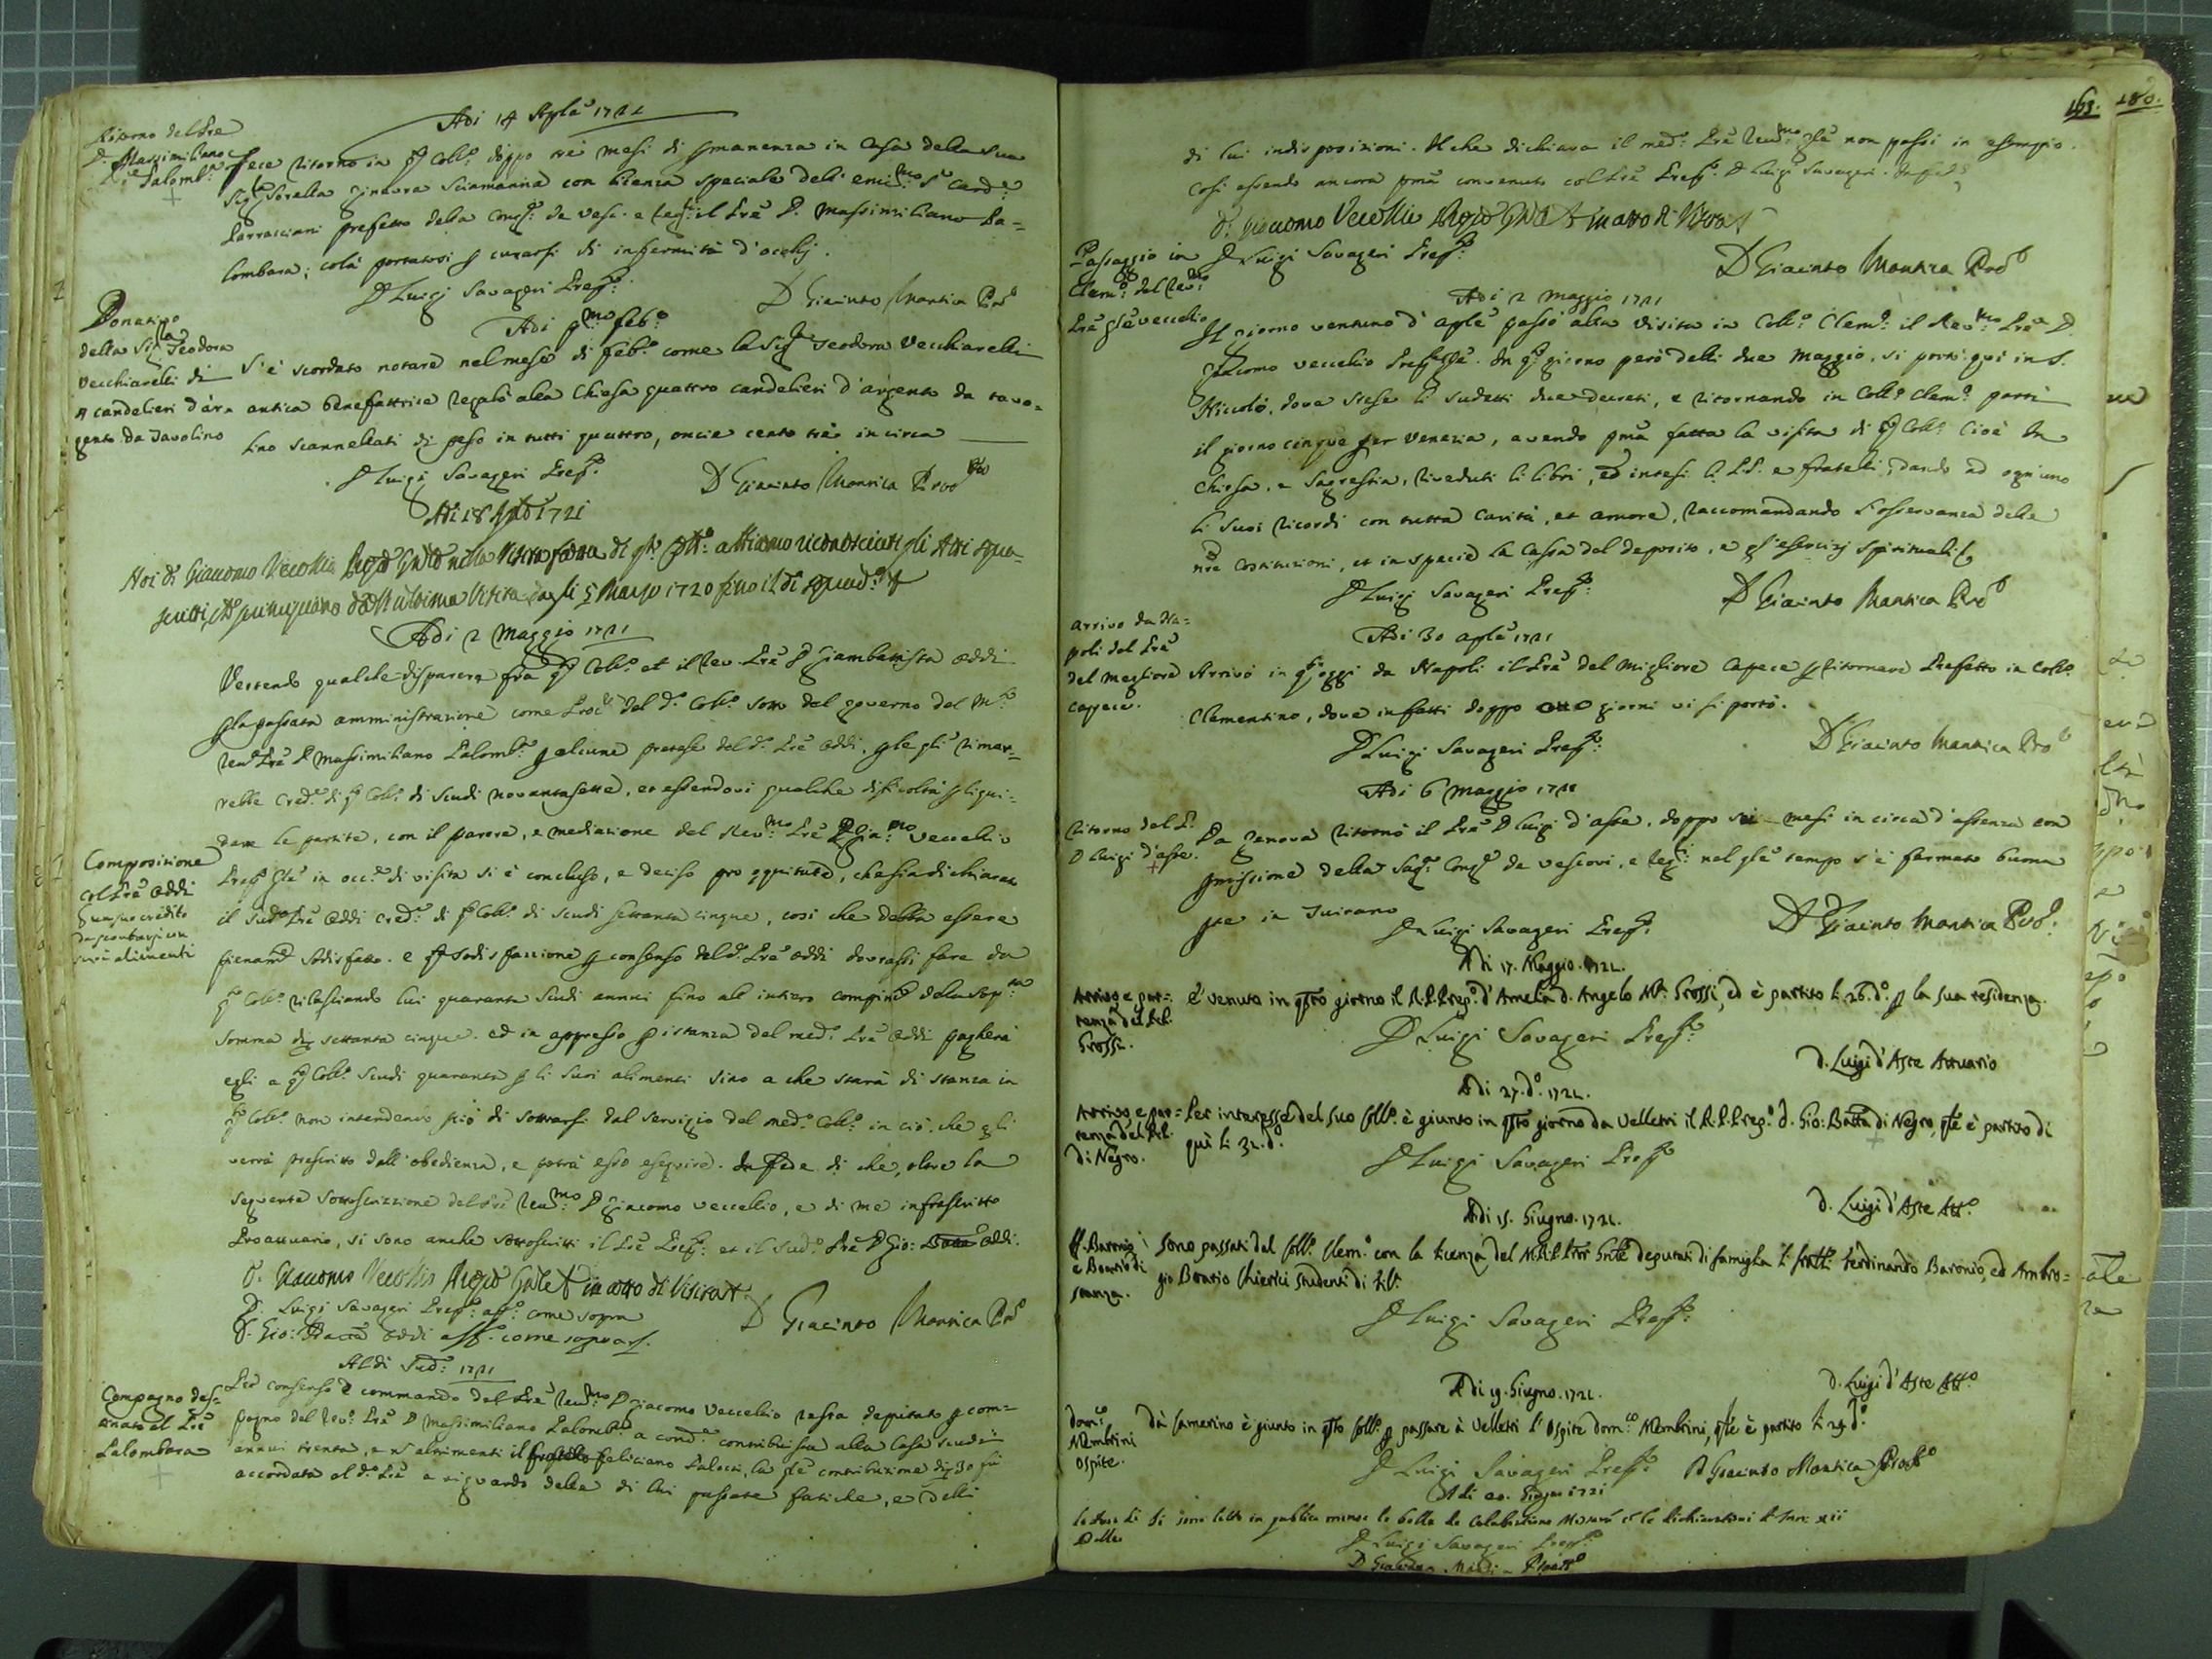 Adi 14 Aple 1721
Ritorno del Pre
D. Massimiliano
Palomb.ª
fece ritorno in q.º Coll.º doppo trè mesi di pmanenza in Casa della sua
Sig.ª Sorella Ginevra Sciamanna con licenza speciale dell' emi.mo S.r Card.e
Parracciani prefetto della Cong.e de Vesc. e reg.ri il Pre D. Massimiliano Pa=
lombara; colà portatosi p curarsi di infermità d'occhj.
D Luigi Savageri Prep.to
D Giacinto Mantica Pro
Adi p.mo feb.º
Donativo
della Sig.ra Teodora
Vecchiarelli di
4 candelieri d'ar=
gento da Tavolino
S'è scordato notare nel mese di feb.º come la Sig.ª Teodora Vecchiarelli
antica benefattrice regalò alla Chiesa quattro candelieri d'argento da tavo=
lino scannellati di peso in tutti quattro, oncie cento trè in circa
D Luigi Savageri Prep.to
D Giacinto Mantica Pro
Adi 18 Aple 1721
Noi D. Giacomo Vecellio Prep.to Gnle nella Visita fatta di q.to Coll.º abbiamo riconosciuti gli Atti
dell'ultima Visita dagli 5 Marzo 1720 fino il dì
Adi 2 Maggio 1721
Vertendo qualche disparere fra q.º Coll.º et il Rev. Pre D Giambattista Oddi
p la passata amministrazione come Proc.re del d.º Coll.º sotto del governo del M.º
Rev.º Pre D Massimiliano Palomb.ª p alcune pretese del d.º Pre Oddi, p le qli rimar=
rebbe cred.e di q.º Coll.º di scudi novantasette, et essendovi qualche dificoltà p liqui=
dare le partite, con il parere, e mediazione del Rev.mo Pre D Gia.mo Vecellio
Prep. Gle in occ.e di visita si è concluso, e deciso pro equitate, che sia dichiarato
Composizione
col Pre Oddi
suo credito
alimenti
il sud.º Pre Oddi cred.e di q.º Coll.º di scudi settanta cinque, così che debba essere
pienam.te sodisfatto. e q.ª sodisfazzione p consenso del d.º Pre Oddi dovrassi fare da
q.º Coll.º rilasciando lui quaranta scudi annui fino all' intiero compim.to della sop.ta
somma di settanta cinque. ed in appresso p istanza del med.º Pre Oddi pagherà
egli a q.º Coll.º scudi quaranta p li suoi alimenti sino a che starà di stanza in
q.º Coll.º non intendendo più di sottrarsi dal servizio del med.º Coll.º in ciò, che gli
verrà prescritto dall'obedienza, e potrà esso eseguire. In fede di che, oltre la
seguente sottoscrizzione del Pre Rev.mo D Giacomo Vecellio, e di me infrascritto
Proattuario, si sono anche sottoscritti il Pre Prep.to et il sud.º Pre D Gio: Batta Oddi.
D. Giacomo Vecellio Prep.to Gnle in atto di Visita
D. Luigi Savageri Prep.to aff.º come sopra
D. Gio: Batta Oddi aff.º come sopra
D Giacinto Mantica Pro
Al di sud.º 1721
Compagno des=
tinato al Pre
Palombara
Per consenso e commando del Pre Rev.mo D Giacomo Vecellio resta deputato p com=
pagno del Rev.º Pre D Massimiliano Palomb.ª a cond.e contribuisca alla Casa scudi
annui trenta, e n' altrimenti il fratello Feliciano Palocci, la qle contribuzione di 30 fù
accordata al d.º Pre a riguardo delle di lui passate fatiche, e delli
163. 180.
di lui indisposizioni. Il che dichiara il med.º Pre Rev.mo Gle non passi in esempio.
Così essendo ancora pma convenuto col Pre Prep.to D Luigi Savageri. In fede
D. Giacomo Vecellio Prep.to Gnle in atto di Visita
D Luigi Savageri Prep.to
D Giacinto Mantica Pro
Passaggio in
Clem.º del Rev.mo
Pre Gle Vecellio
Adi 2 Maggio 1721
Il giorno ventuno d'aple passò alla visita in Coll.º Clem.º il Rev.mo Pre D.
Giacomo Vecellio Prep. Gle. In q.º giorno però delli due Maggio, si portò quì in S.
Niccolò, dove stese li sudetti due decreti, e ritornando in Coll.º Clem.º partì
il giorno cinque per Venezia, avendo pma fatta la visita di q.º Coll.º cioè in
Chiesa, e Sagrestia, riveduti li libri, ed intesi li P.P. e fratelli, dando ad ogn'uno
li suoi ricordi con tutta carità, et amore, raccomandando l'osservanza delle
nre costituzioni, et in specie la cassa del deposito, e gl'esercizj spirituali
D Luigi Savageri Prep.to
D Giacinto Mantica Pro
arrivo da Na=
poli del Pre
del Megliore
Capece.
Adi 30 aple 1721
Arrivò in q.º oggi da Napoli il Pre del Migliore Capece p ritornare Prefetto in Coll.º
Clementino, dove infatti doppo otto giorni vi si portò.
D Luigi Savageri Prep.to
D Giacinto Mantica Pro
Adi 6 Maggio 1721
Ritorno del P.
D Luigi d'Aste.
Da Genova ritornò il Pre D Luigi d'Aste, doppo sei mesi in circa d'assenza con
pmissione della Sag.ª Cong.e de Vescovi, e reg.ri nel qle tempo s'è fermato buona
pte in Tuirano
D Luigi Savageri Prep.to
D Giacinto Mantica Pro
Adi 17. Maggio. 1721.
Arrivo e par=
tenza del P.
Grossi.
È venuto in qsto giorno il R.P. Prep.º d'Amelia d. Angelo M.ª Grossi, ed è partito li 26. d.º p la sua residenza.
D Luigi Savageri Prep.to
d. Luigi d'Aste Attuario
Adi 27. d.º 1721.
Arrivo e par=
tenza del P.
di Negro.
Per interesse del suo Coll.º è giunto in qsto giorno da Velletri il R.P. Prep.º d. Gio: Batta di Negro, qle è partito di
quì li 31. d.º
D Luigi Savageri Prep.to
d. Luigi d'Aste Att.º
Adi 15. Giugno. 1721.
ff. Baronio
e Boario di
stanza.
Sono passati dal Coll.º Clem.º con la licenza del deputati di famiglia li fratelli Ferdinando Baronio, ed Ambro=
gio Boario Chierici studenti di
D Luigi Savageri Prep.to
d. Luigi d'Aste Att.º
Adi 19. Giugno. 1721.
Dom.co
Membrini
Ospite.
Da Camerino è giunto in qsto Coll.º p passare à Velletri l'Ospite Dom.co Membrini, qle è partito li 29 d.º
D Luigi Savageri Prep.to
D Giacinto Mantica
Adi 20. Giugno 1721
Si sono lette in publica mensa le bolle
D Luigi Savageri Prep.to